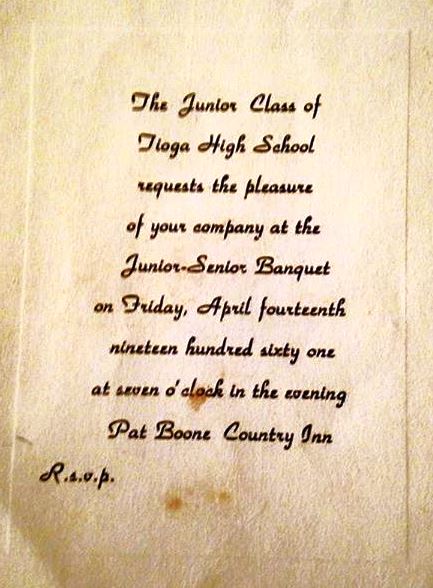 The Junior Class of
Tioga High School
requests the pleasure
of your company at the
Junior-Senior Banquet
on Friday, April fourteenth
nineteen hundred sixty one
at seven o'clock in the evening
Pat Boone Country Inn
R.s.v.p.